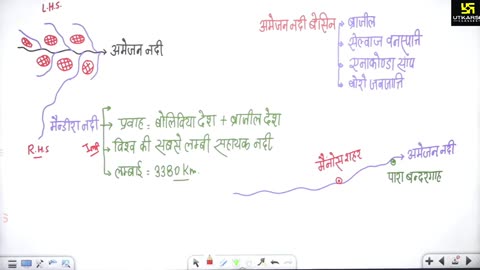 L.H.S
अमेजन नदी
मैन्डीरा नदी
R.H.S
Imp
प्रवाह = बोलिविया देश + ब्राजील देश
विश्व की सबसे लम्बी सहायक नदी
लम्बाई = 3380 Km.
अमेजन नदी बेसिन
ब्राजील
सेल्वाज वनस्पति
एनाकोण्डा साँप
बोरो जनजाति
मैनोस शहर
अमेजन नदी
पारा बन्दरगाह
UTKARSH